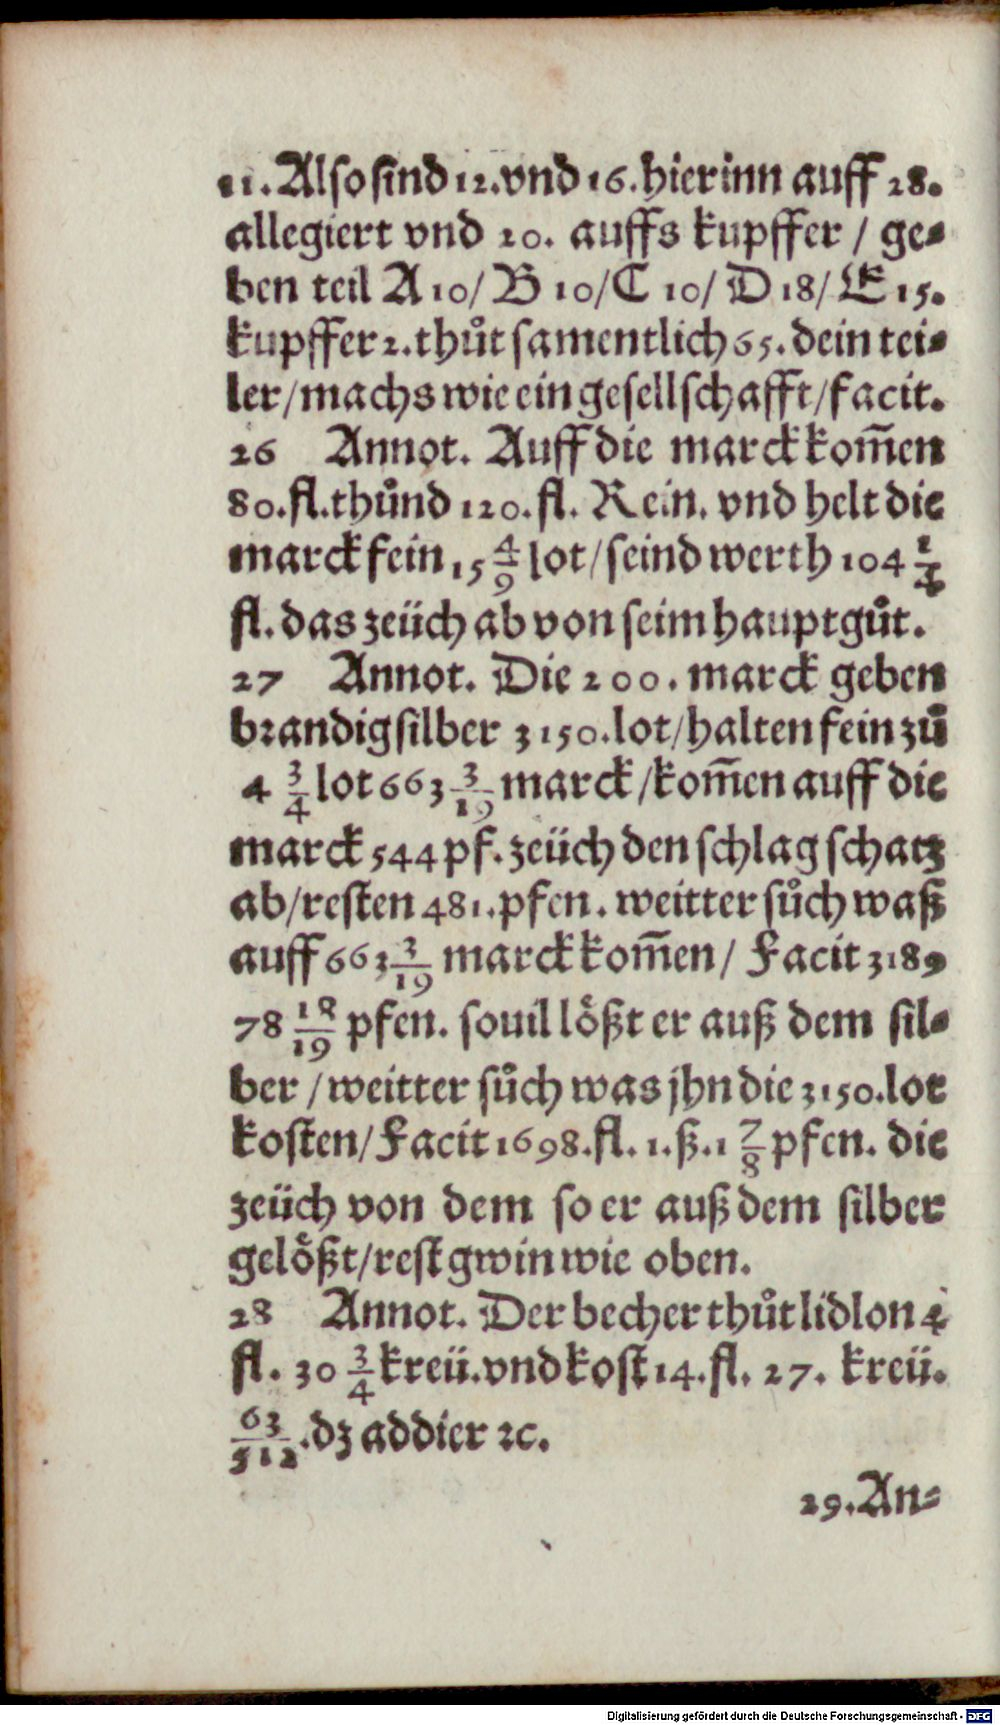 11. Also sind 12. vnd 16. hierinn auff 28.
allegiert vnd 20. auffs kupffer / ge-
ben teil A 10/ B 10/ C 10/ D 18/ E 15.
kupffer 2. thůt samentlich 65. dein tei-
ler/machs wie ein gesellschafft/facit.
26 Annot. Auff die marck kom̃en
80. fl. thůnd 120. fl. Rein. vnd helt die
marck fein 15 4/9 lot/seind werth 104 1/4
fl. das zeüch ab von seim hauptgůt.
27 Annot. Die 200. marck geben
brandigsilber 3150. lot/halten fein zů
4 3/4 lot 663 3/19 marck/kom̃en auff die
marck 544 pf. zeüch den schlagschatz
ab/resten 481. pfen. weitter sůch waß
auff 663 3/19 marck kom̃en/ Facit 3189
78 18/19 pfen. souil lößt er auß dem sil-
ber / weitter sůch was jhn die 3150. lot
kosten/Facit 1698. fl. 1. ß. 1 7/8 pfen. die
zeüch von dem so er auß dem silber
gelößt/rest gwin wie oben.
28 Annot. Der becher thůt lidlon 4
fl. 30 3/4 kreü. vnd kost 14. fl. 27. kreü.
63/512. dz addier ꝛc.
29. An-
Digitalisierung gefördert durch die Deutsche Forschungsgemeinschaft - DFG